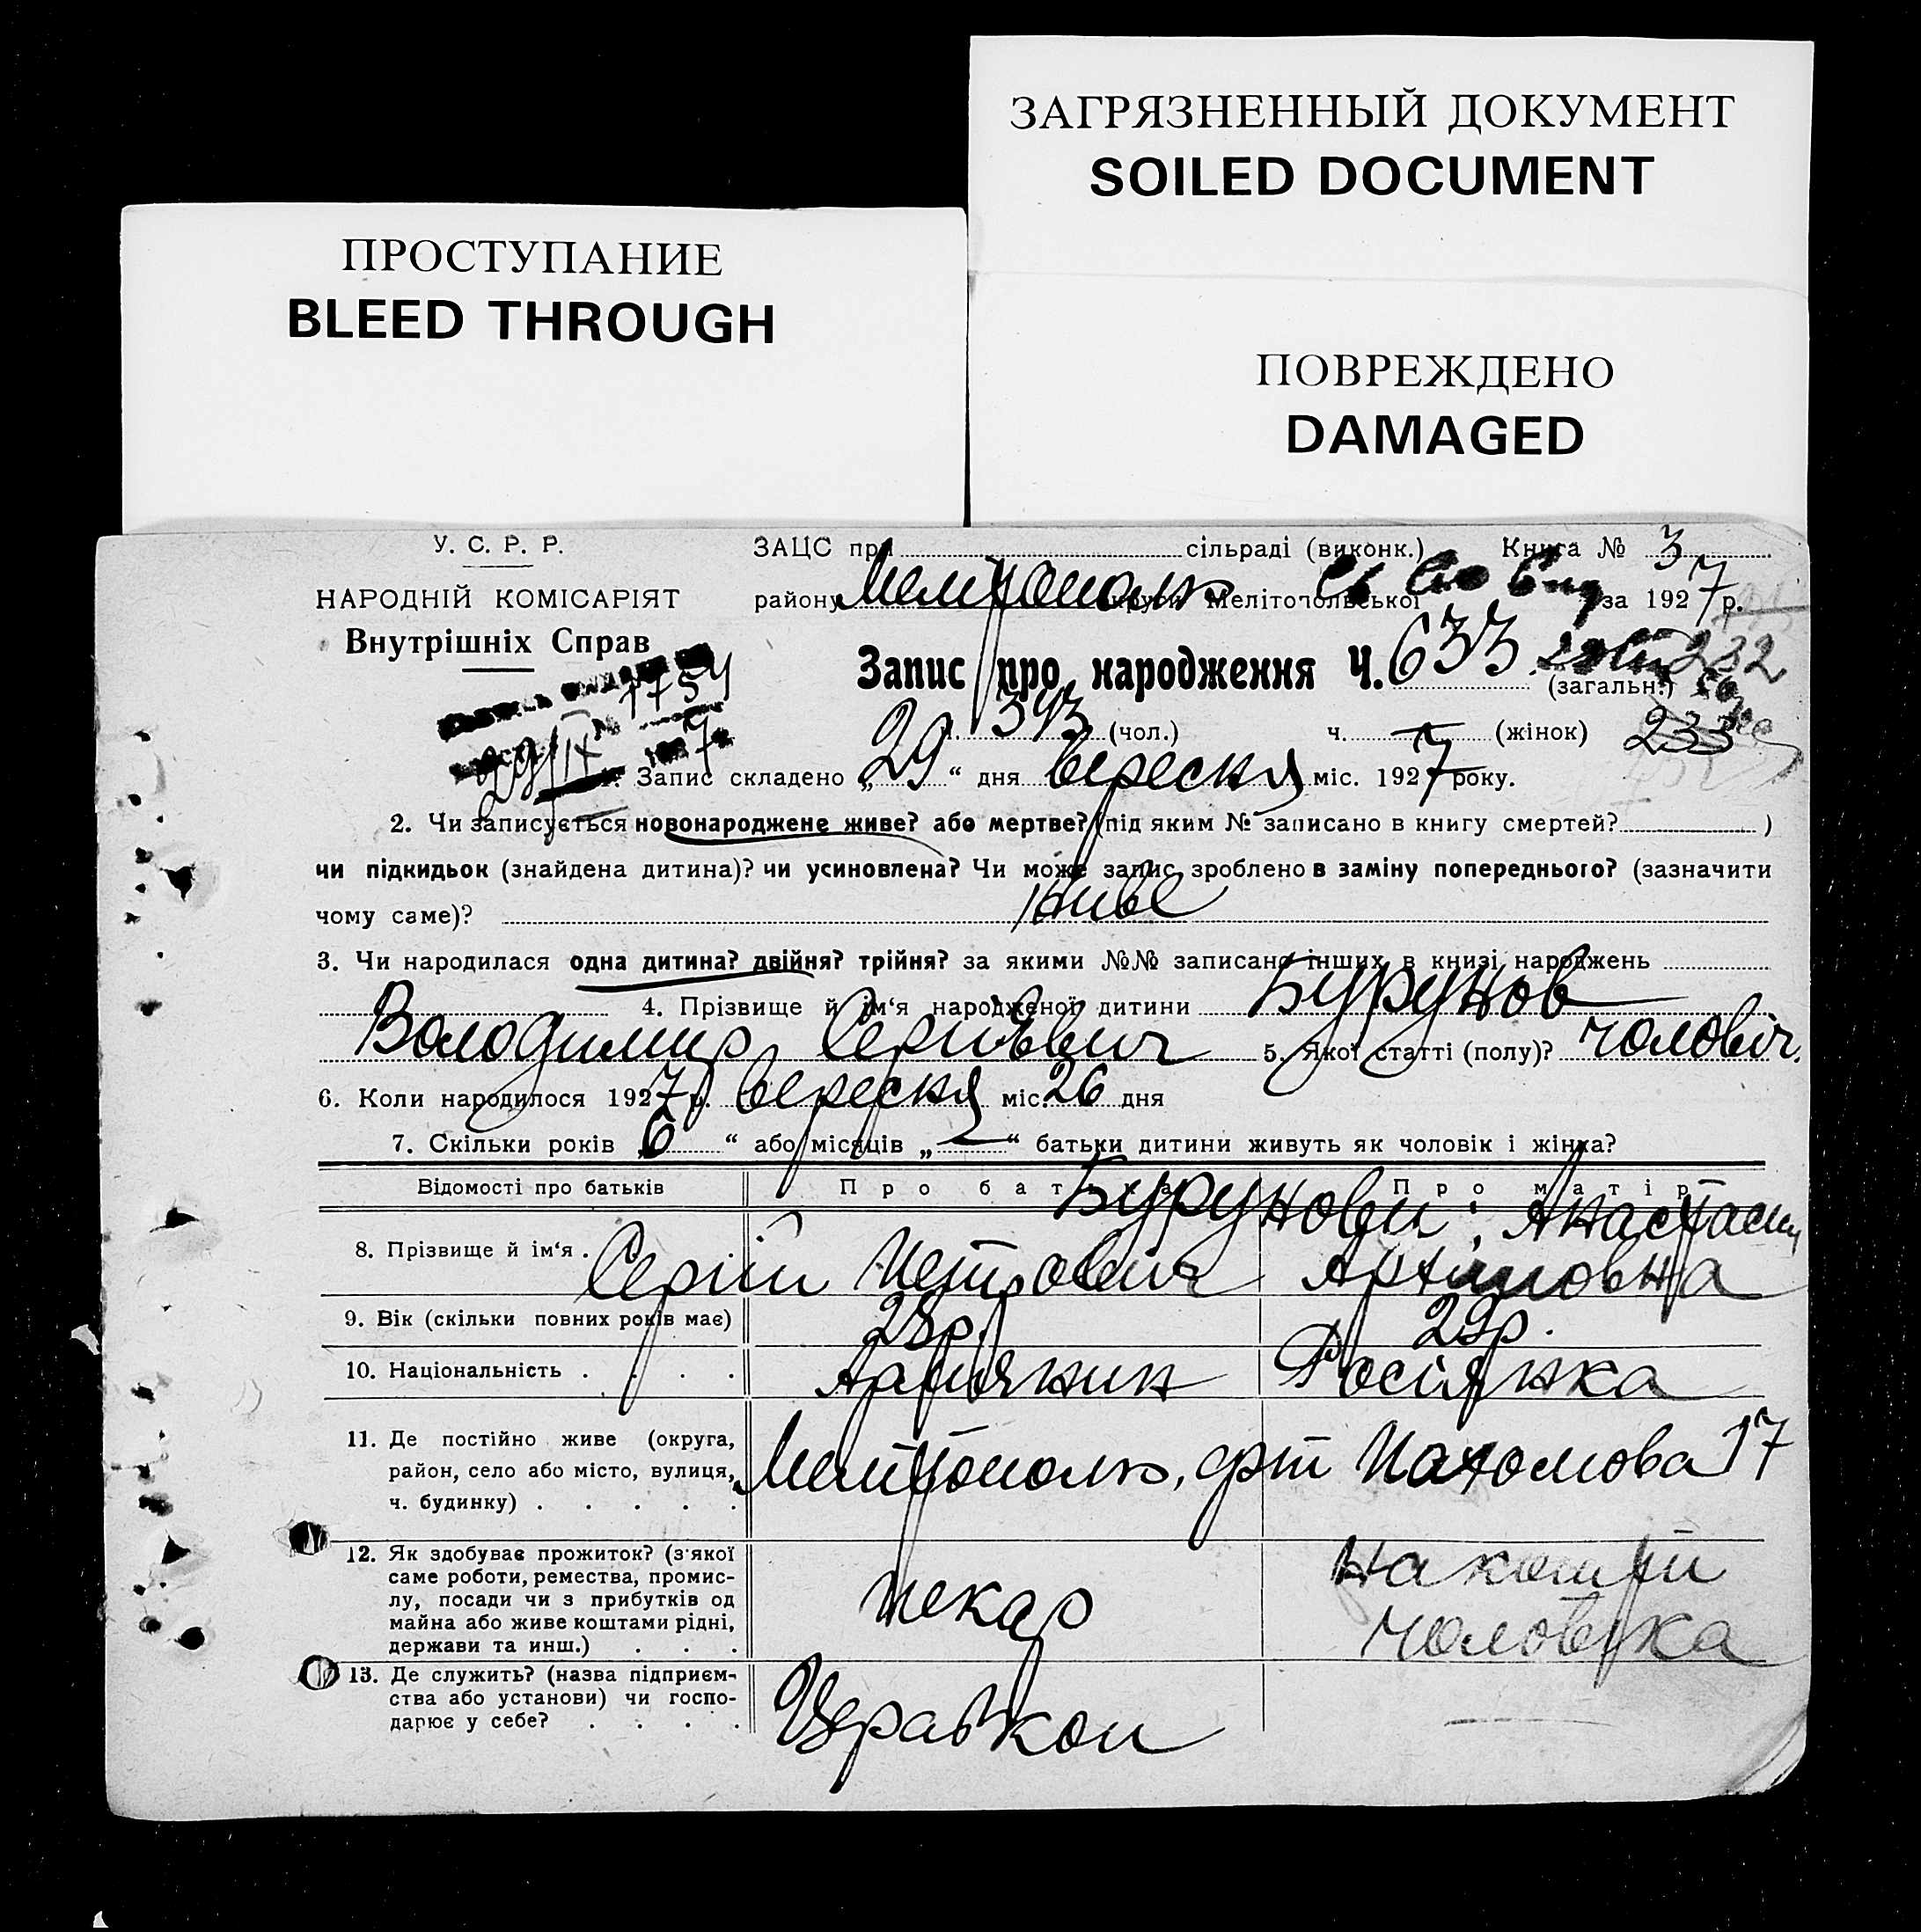 ЗАГРЯЗНЕННЫЙ ДОКУМЕНТ
SOILED DOCUMENT
ПРОСТУПАНИЕ
BLEED THROUGH
ПОВРЕЖДЕНО
DAMAGED
У. С. Р. Р.
НАРОДНІЙ КОМІСАРІЯТ
Внутрішніх Справ
ЗАЦС при сільраді (виконк.) Книга № 3
району округи Мелітопольської за 1927 р.
Запис про народження Ч. 633 232
(загальн.)
1754
29/IX 7
ч. 393 (чол.) ч. — (жінок) 233
1. Запис складено „29“ дня вересня міс. 1927 року.
2. Чи записується новонароджене живе? або мертве? (під яким № записано в книгу смертей? )
чи підкидьок (знайдена дитина)? чи усиновлена? Чи може запис зроблено в заміну попереднього? (зазначити
чому саме)? живе
3. Чи народилася одна дитина? двійня? трійня? за якими №№ записано інших в книзі народжень
4. Прізвище й ім‘я народженої дитини Бурунов
Володимир Сергієвич 5. Якої статті (полу)? чоловіч.
6. Коли народилося 1927 р. вересня міс. 26 дня
7. Скільки років „6“ або місяців „—“ батьки дитини живуть як чоловік і жінка?
Відомості про батьків Про батька Про матір
8. Прізвище й ім‘я . . . Бурунови: Анастасия
Сергій Петрович
9. Вік (скільки повних років має) 28р. 29р.
10. Національність . . . . Росіянка
11. Де постійно живе (округа,
район, село або місто, вулиця,
ч. будинку) . . . . . Мелітополь, Пахомова 17
12. Як здобуває прожиток? (з'якої
саме роботи, ремества, промис-
лу, посади чи з прибутків од
майна або живе коштами рідні,
держави та инш.) . . . пекар на кошти
чоловіка
13. Де служить? (назва підприєм-
ства або установи) чи госпо-
дарює у себе? . . . . Церабкоп